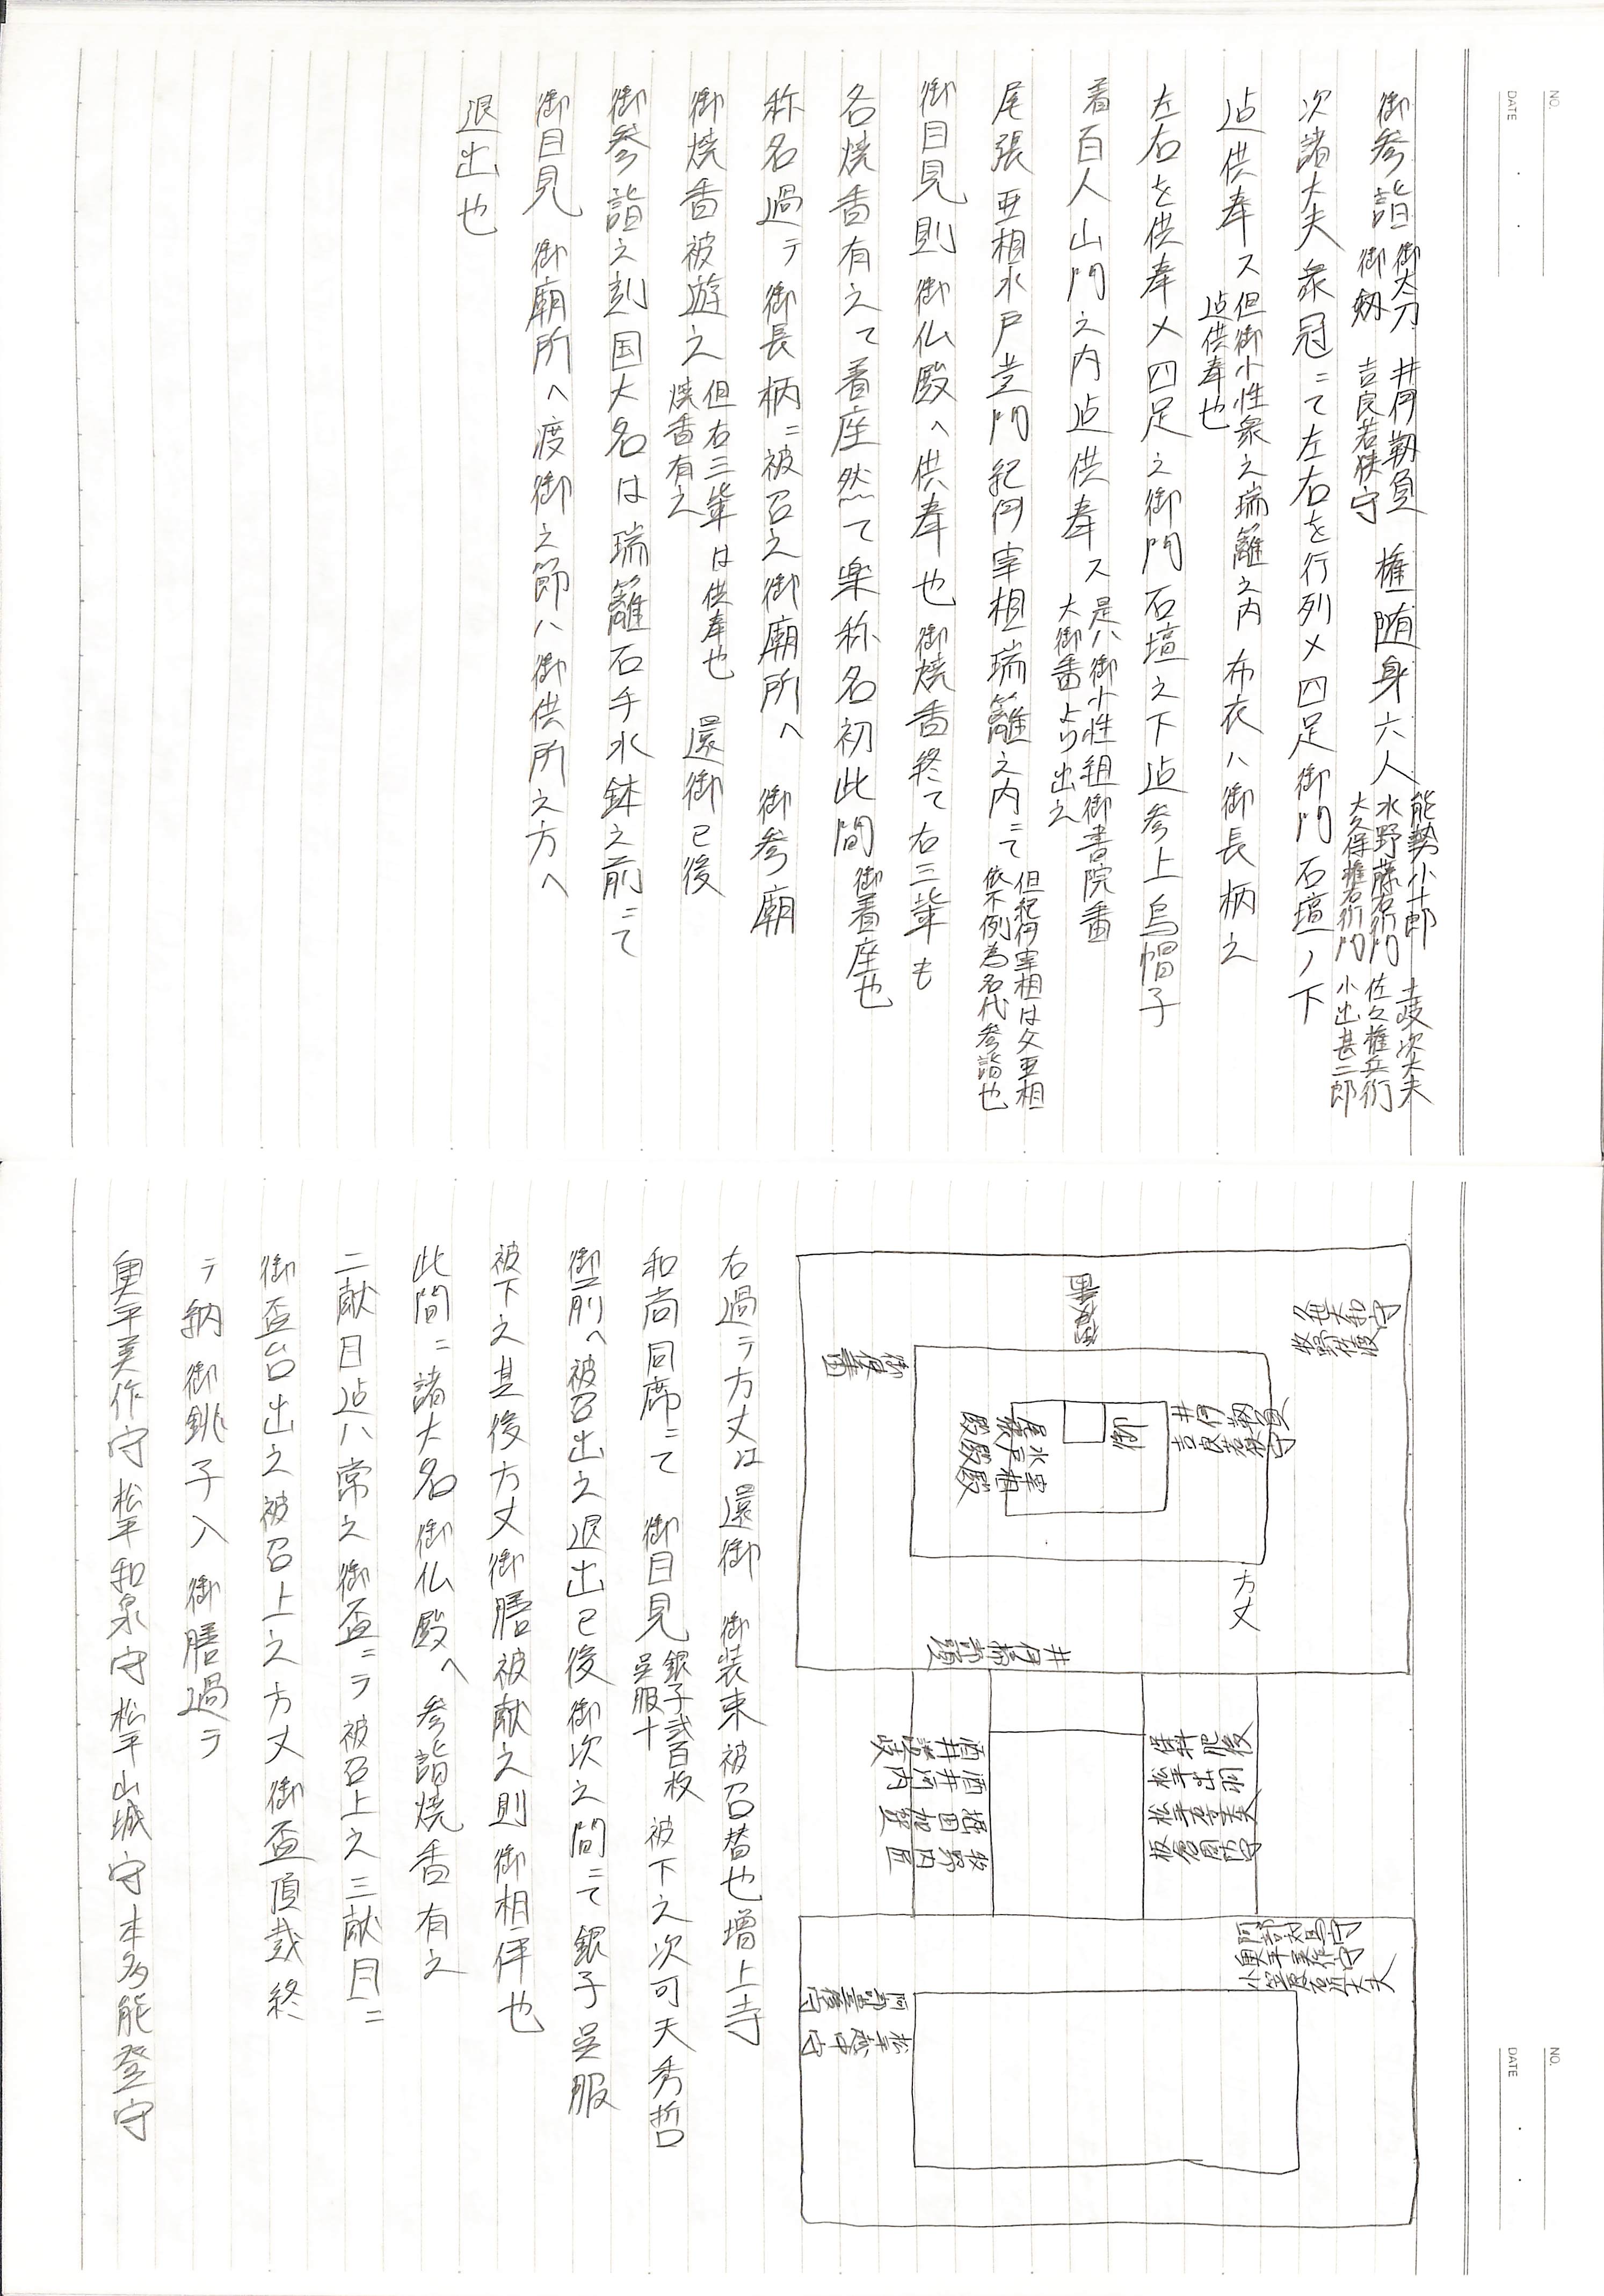 NO.
DATE
御参詣 御太刀 井伊靱負 御剱 吉良若狭守 権随身六人 能勢小十郎 土岐次太夫 水野藤右衛門 佐久権兵衛 大久保権右衛門 小出甚二郎
次諸大夫衆冠ニて左右を行列〆四足御門石壇ノ下
迠供奉ス 但御小性衆之瑞籬之内迠供奉也 布衣ハ御長柄之
左右を供奉〆四足之御門石壇之下迠参上烏帽子
着百人山門之内迠供奉ス 是ハ御小性組御書院番大御番より出之
尾張亜相水戸黄門紀伊宰相瑞籬之内ニて 但紀伊宰相は父亜相依不例為名代参詣也
御目見則御仏殿へ供奉也御焼香終て右三輩も
各焼香有之て着座然て楽称名初此間御着座也
称名過テ御長柄ニ被召之御廟所へ 御参廟
御焼香被遊之 但右三輩は供奉也焼香有之 還御已後
御参詣之刻国大名は瑞籬石手水鉢之前ニて
御目見 御廟所へ渡御之節ハ御供所之方へ
退出也
NO.
DATE
牧野佐渡
御
井伊靱負
吉良若狭守
水戸殿
尾張殿
宰相殿
方丈
酒井讃岐
酒井河内
牧野内匠
保科肥後
松平出羽
板倉周防守
奥平美作守
小笠原右近大夫
阿部豊後守
松平越中守
右過テ方丈江還御 御装束被召替也増上寺
和尚同席ニて 御目見 銀子弐百枚呉服十 被下之次可天秀哲
御前へ被召出之退出已後御次之間ニて銀子呉服
被下之其後方丈御膳被献之則御相伴也
此間ニ諸大名御仏殿へ参詣焼香有之
二献目迠ハ常之御盃ニテ被召上之三献目ニ
御盃台出之被召上之方丈御盃頂戴終
テ納御銚子入御膳過テ
奥平美作守松平和泉守松平山城守本多能登守